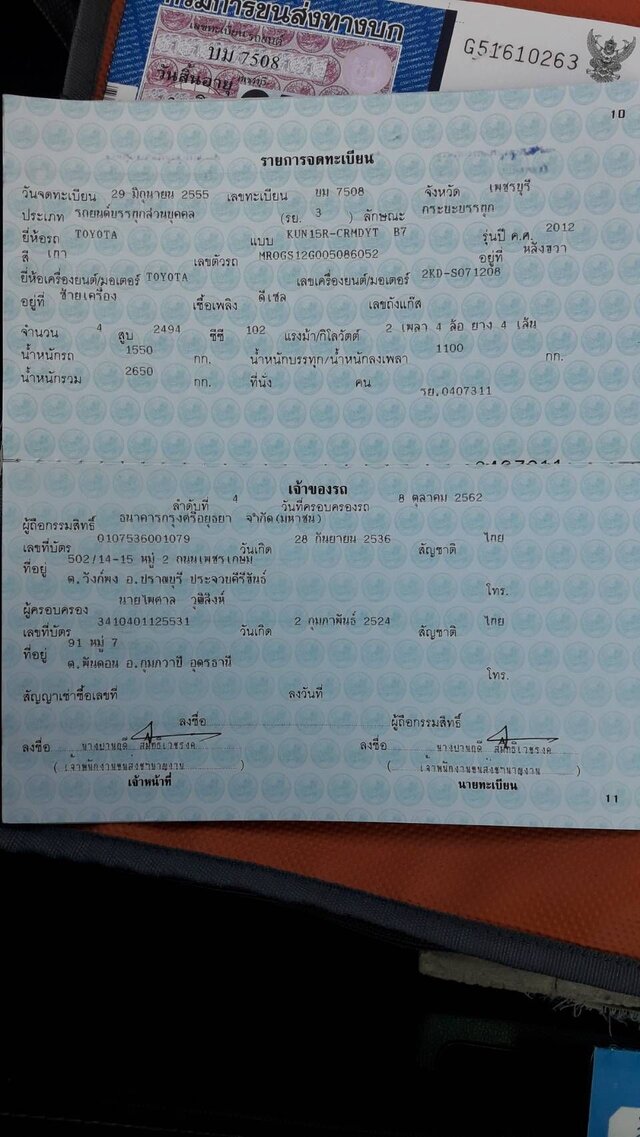 กรมการขนส่งทางบก
เลขทะเบียน รถยนต์
บม 7508
เพชรบุรี
วันสิ้นอายุ
G51610263
10
รายการจดทะเบียน
วันจดทะเบียน 29 มิถุนายน 2555 เลขทะเบียน บม 7508 จังหวัด เพชรบุรี
ประเภท รถยนต์บรรทุกส่วนบุคคล (รย. 3 ) ลักษณะ กระบะบรรทุก
ยี่ห้อรถ TOYOTA แบบ KUN15R-CRMDYT B7 รุ่นปี ค.ศ. 2012
สี เทา เลขตัวรถ MR0GS126005086052 อยู่ที่ หลังขวา
ยี่ห้อเครื่องยนต์/มอเตอร์ TOYOTA เลขเครื่องยนต์/มอเตอร์ 2KD-S071208
อยู่ที่ ซ้ายเครื่อง เชื้อเพลิง ดีเซล เลขถังแก๊ส
จำนวน 4 สูบ 2494 ซีซี 102 แรงม้า/กิโลวัตต์ 2 เพลา 4 ล้อ ยาง 4 เส้น
น้ำหนักรถ 1550 กก. น้ำหนักบรรทุก/น้ำหนักลงเพลา 1100 กก.
น้ำหนักรวม 2650 กก. ที่นั่ง คน
รย.0407311
เจ้าของรถ
ลำดับที่ 4 วันที่ครอบครองรถ 8 ตุลาคม 2562
ผู้ถือกรรมสิทธิ์ ธนาคารกรุงศรีอยุธยา จำกัด(มหาชน)
เลขที่บัตร 0107536001079 วันเกิด 28 กันยายน 2536 สัญชาติ ไทย
ที่อยู่ 502/14-15 หมู่ 2 ถนนเพชรเกษม
ต.วังก์พง อ.ปราณบุรี ประจวบคีรีขันธ์ โทร.
ผู้ครอบครอง นายไพศาล วุฒิสิงห์
เลขที่บัตร 3410401125531 วันเกิด 2 กุมภาพันธ์ 2524 สัญชาติ ไทย
ที่อยู่ 91 หมู่ 7
ต.พันดอน อ.กุมภวาปี อุดรธานี โทร.
สัญญาเช่าซื้อเลขที่ ลงวันที่
ลงชื่อ ผู้ถือกรรมสิทธิ์
ลงชื่อ ลงชื่อ
(เจ้าพนักงานขนส่งชำนาญงาน) (เจ้าพนักงานขนส่งชำนาญงาน)
เจ้าหน้าที่ นายทะเบียน
11